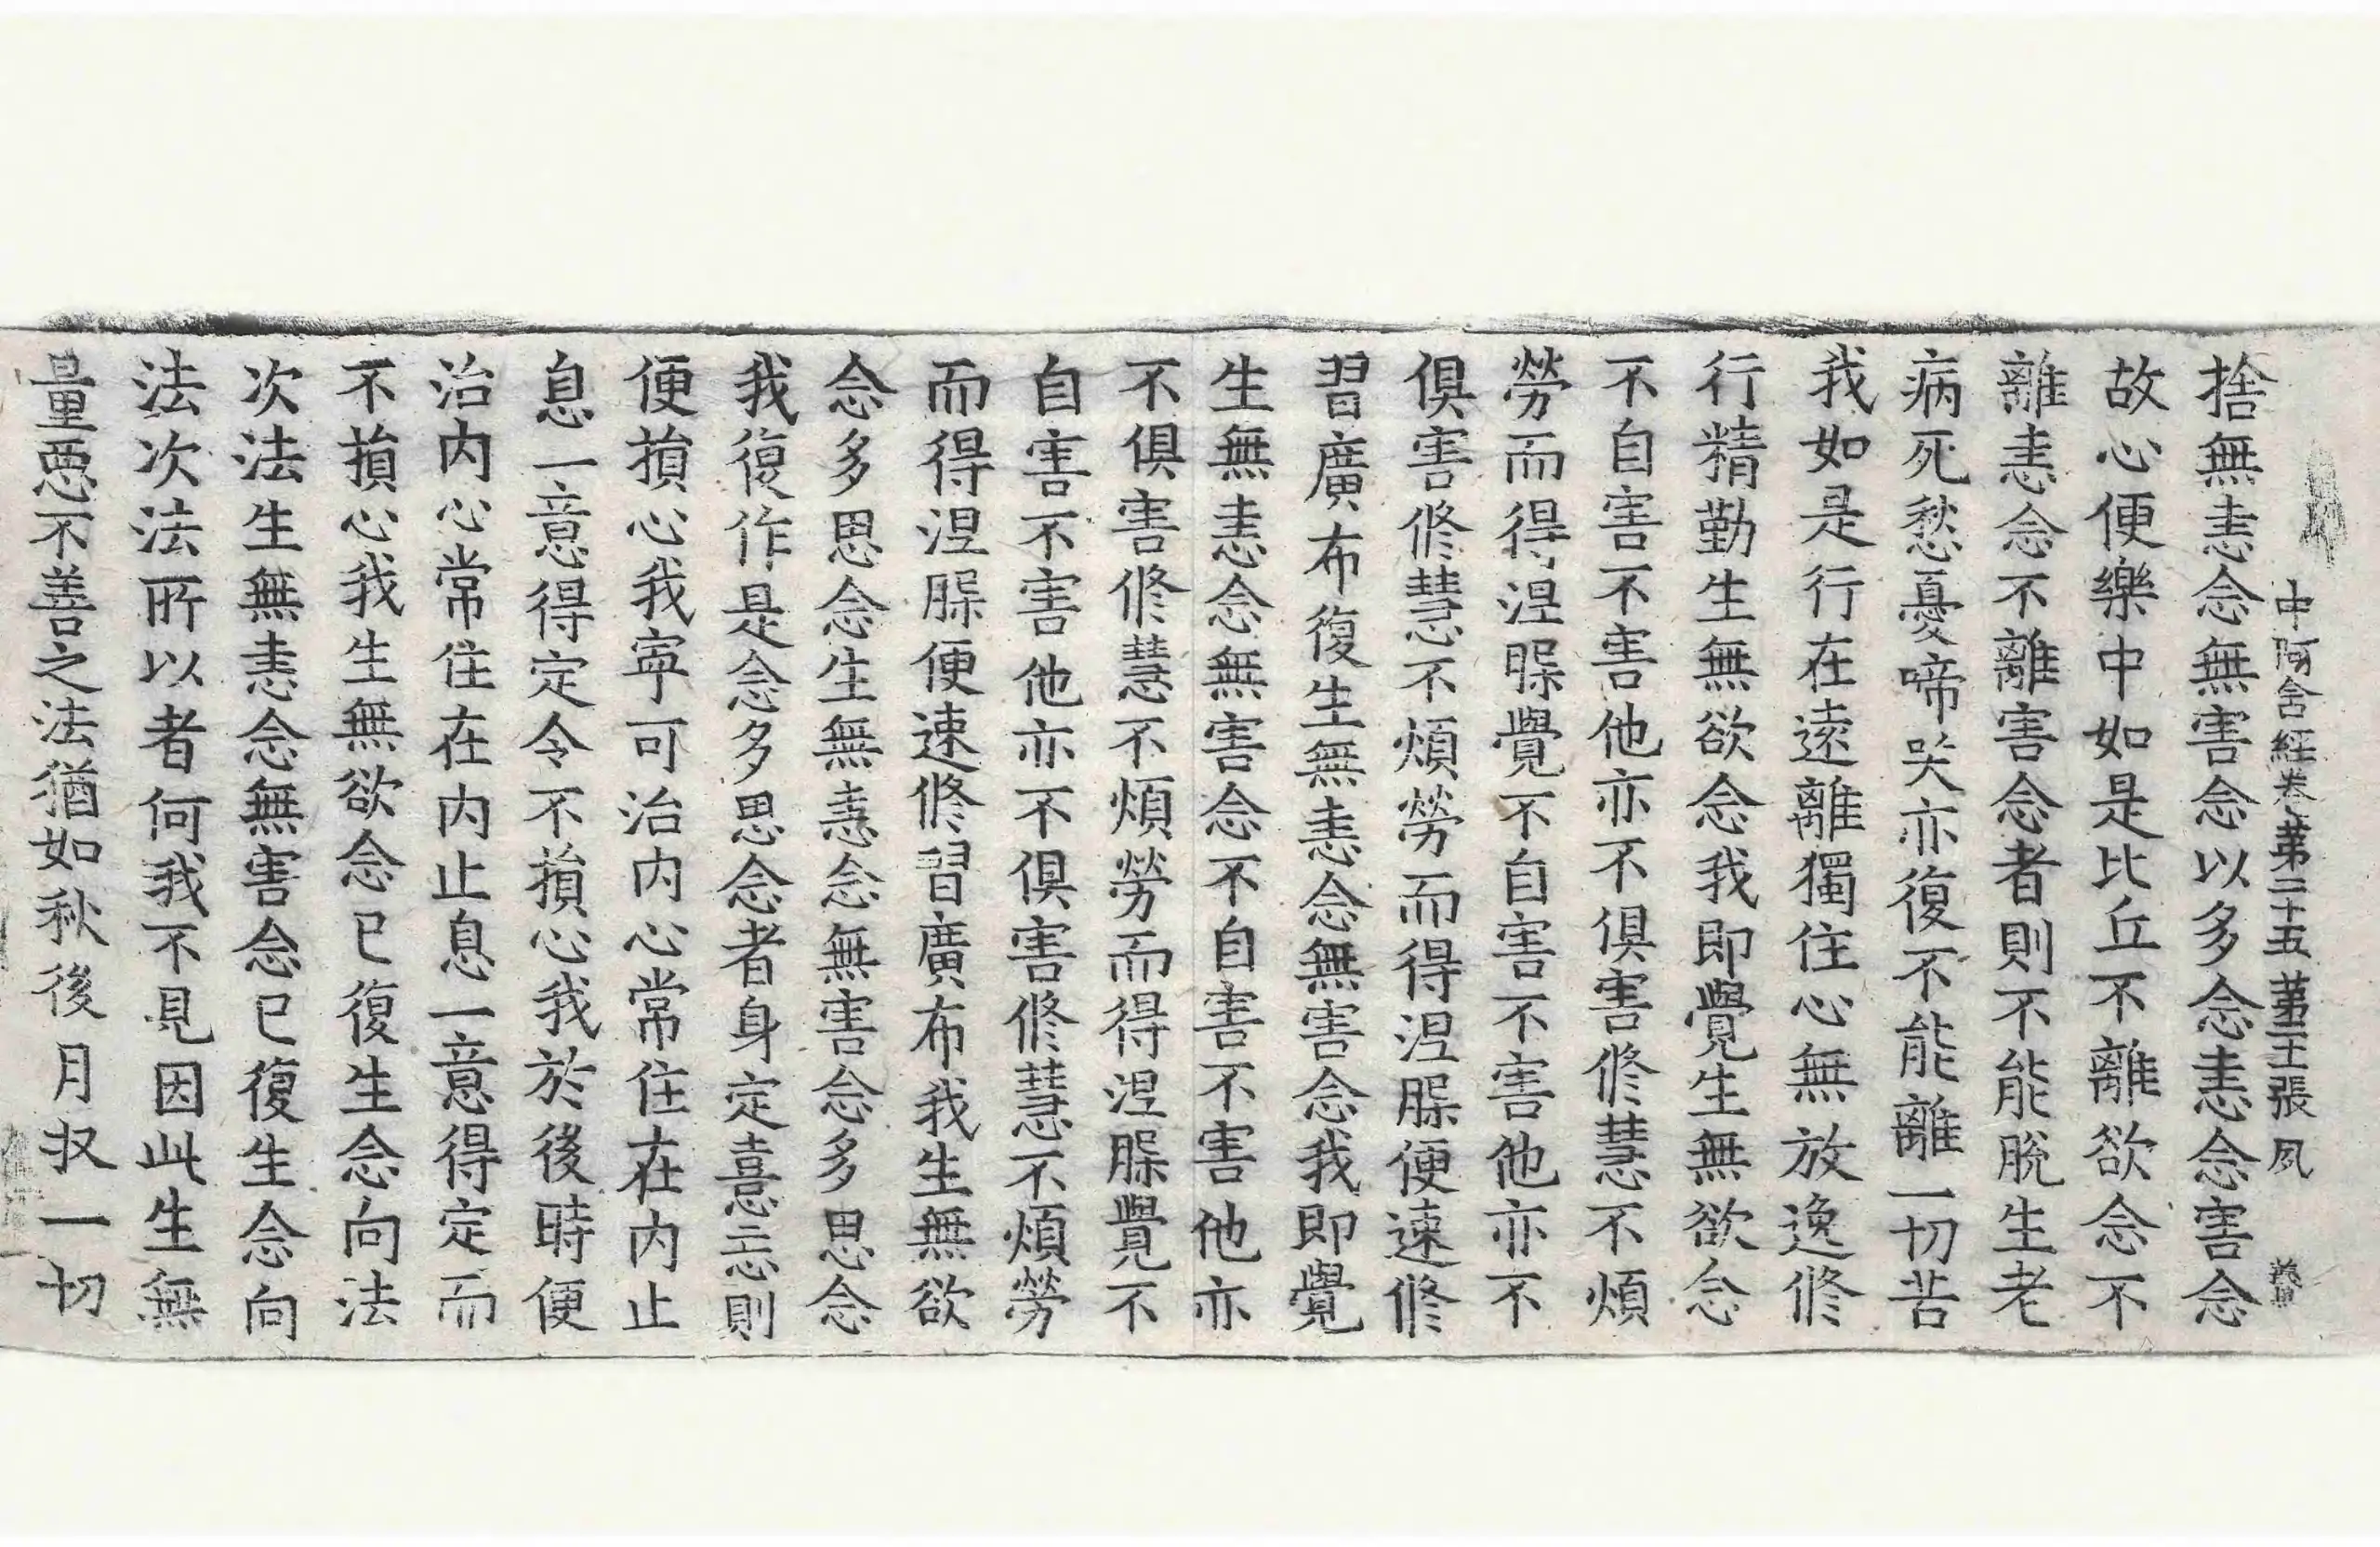 中阿含經卷第二十五 第二十張 夙
捨無恚念無害念以多念恚念害念
故心便樂中如是比丘不離欲念不
離恚念不離害念者則不能脫生老
病死愁憂啼哭亦復不能離一切苦
我如是行在遠離獨住心無放逸修
行精勤生無欲念我即覺生無欲念
不自害不害他亦不俱害修慧不煩
勞而得涅槃覺不自害不害他亦不
俱害修慧不煩勞而得涅槃便速修
習廣布復生無恚念無害念我即覺
生無恚念無害念不自害不害他亦
不俱害修慧不煩勞而得涅槃覺不
自害不害他亦不俱害修慧不煩勞
而得涅槃便速修習廣布我生無欲
念多思念生無恚念無害念多思念
我復作是念多思念者身定憙忘則
便損心我寧可治內心常住在內止
息一意得定令不損心我於後時便
治內心常住在內止息一意得定而
不損心我生無欲念已復生念向法
次法生無恚念無害念已復生念向
法次法所以者何我不見因此生無
量惡不善之法猶如秋後月収一切